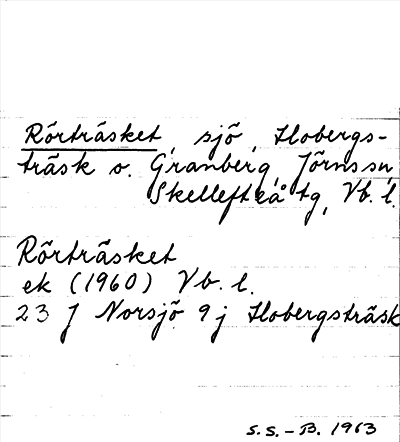 Rörträsket, sjö, Hobergs-
träsk o. Granberg, Jörns sn,
Skellefteå tg, Vb. l.
Rörträsket
ek (1960) Vb. l.
23 J Norsjö 9 j Hobergsträsk
S.S.-B. 1963